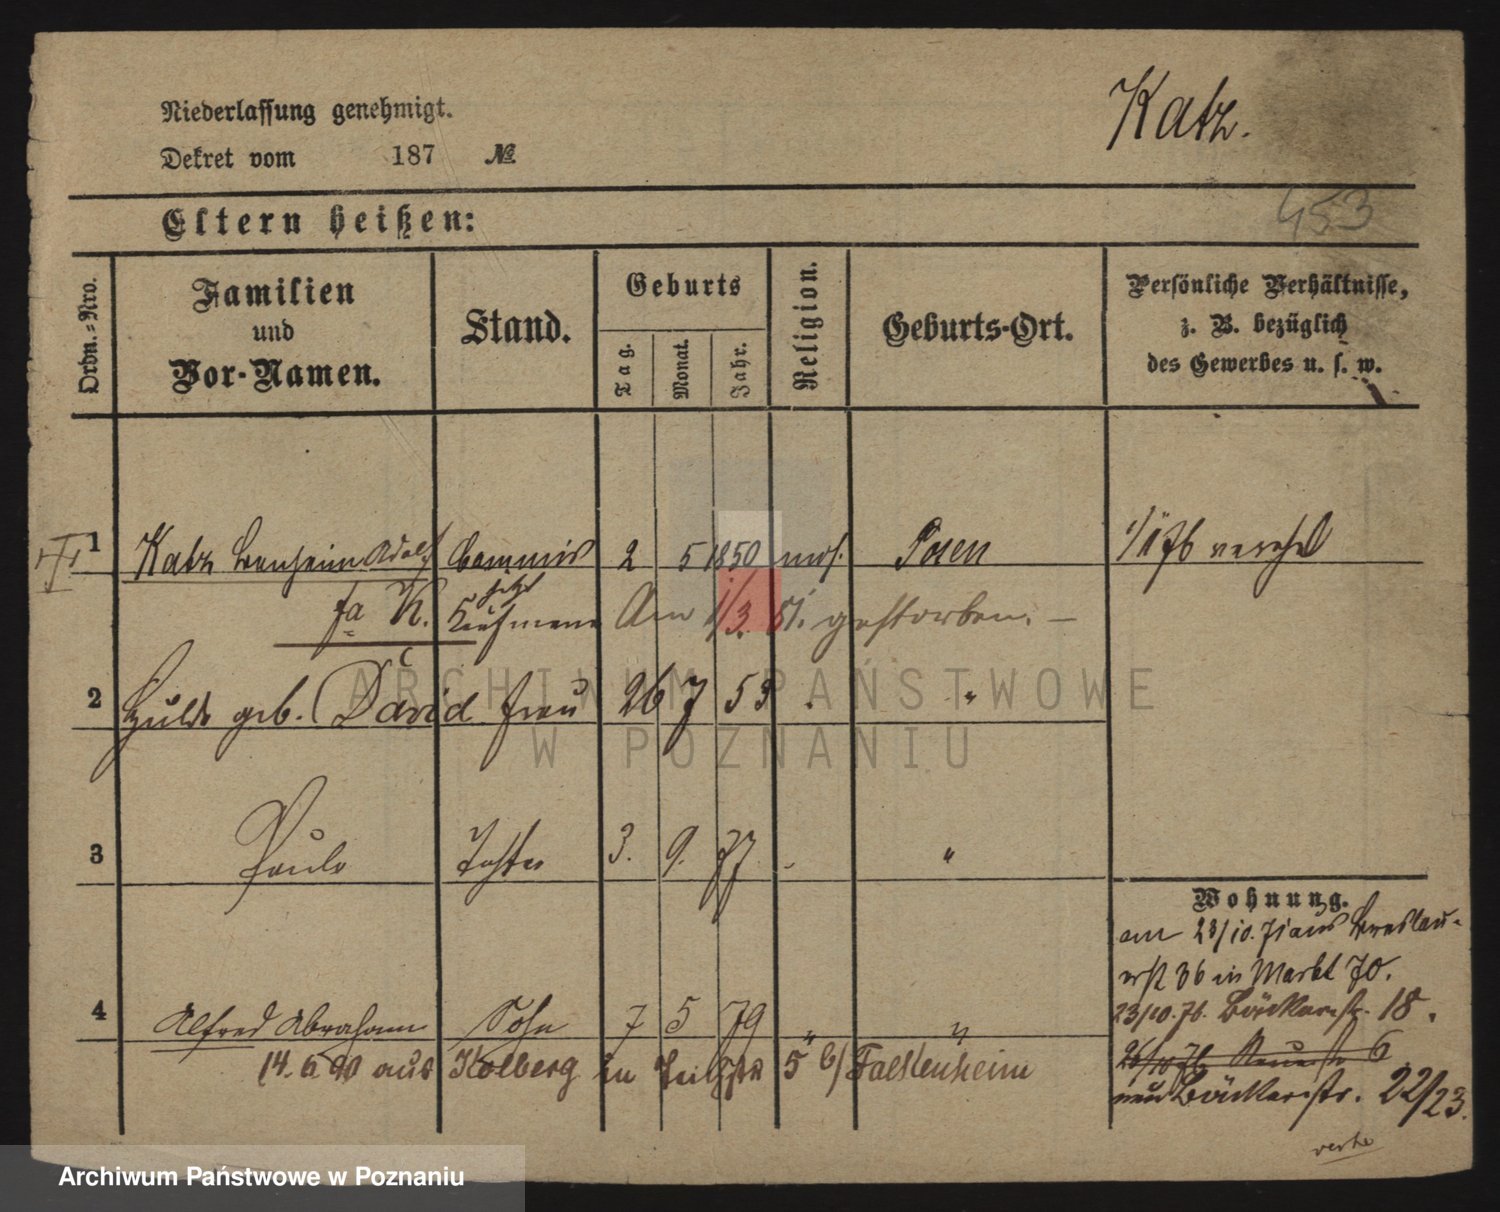 Niederlassung genehmigt.
Katz.
Dekret vom 187 №
453
Eltern heißen:
Ordn.-Nro.
Familien und Vor-Namen.
Stand.
Geburts
Tag.
Monat.
Jahr.
Religion.
Geburts-Ort.
Persönliche Verhältnisse,
z. B. bezüglich
des Gewerbes u. s. w.
1 Katz Adolf Commis 2 5 1850 mos. Posen
fa K. jetzt Kaufmann Am 1/3. 81. gestorben. —
2 Hulda geb. David Frau 26 7 53 "
3 Paula Tochter 3. 9. 77 - "
Wohnung.
am 23/10. 71 aus Breslau-
rst 36 in Markt 70.
4 Alfred Abraham Sohn 7 5 79 " "
23/10. 76. Bäckerstr. 18.
14. 6 90 aus Kolberg in 5 b/ Falkenheim
26/10 76 6
neu Bäckerstr. 22/23.
ARCHIWUM PAŃSTWOWE
W POZNANIU
Archiwum Państwowe w Poznaniu